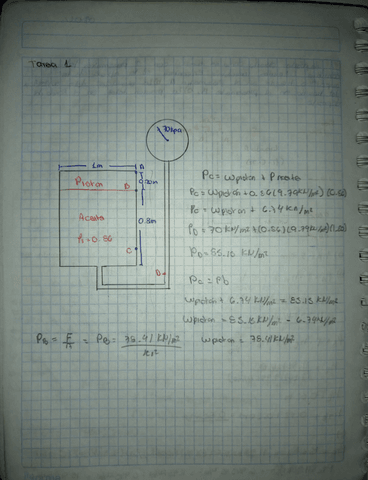 Tarea 1
70 kpa
1m
A
0.70m
Piston
B
Aceite
0.8m
ρ = 0.86
C
D
Pc = wpiston + Paceite
Pc = wpiston + 0.86 (9.79 KN/m²) (0.80)
Pc = wpiston + 6.74 KN/m²
PD = 70 KN/m² + (0.86)(9.79 KN/m²)(1.80)
PD = 85.15 KN/m²
Pc = PD
wpiston + 6.74 KN/m² = 85.15 KN/m²
wpiston = 85.15 KN/m² - 6.74 KN/m²
wpiston = 78.41 KN/m²
PB = F/A = PB = 78.41 KN/m²